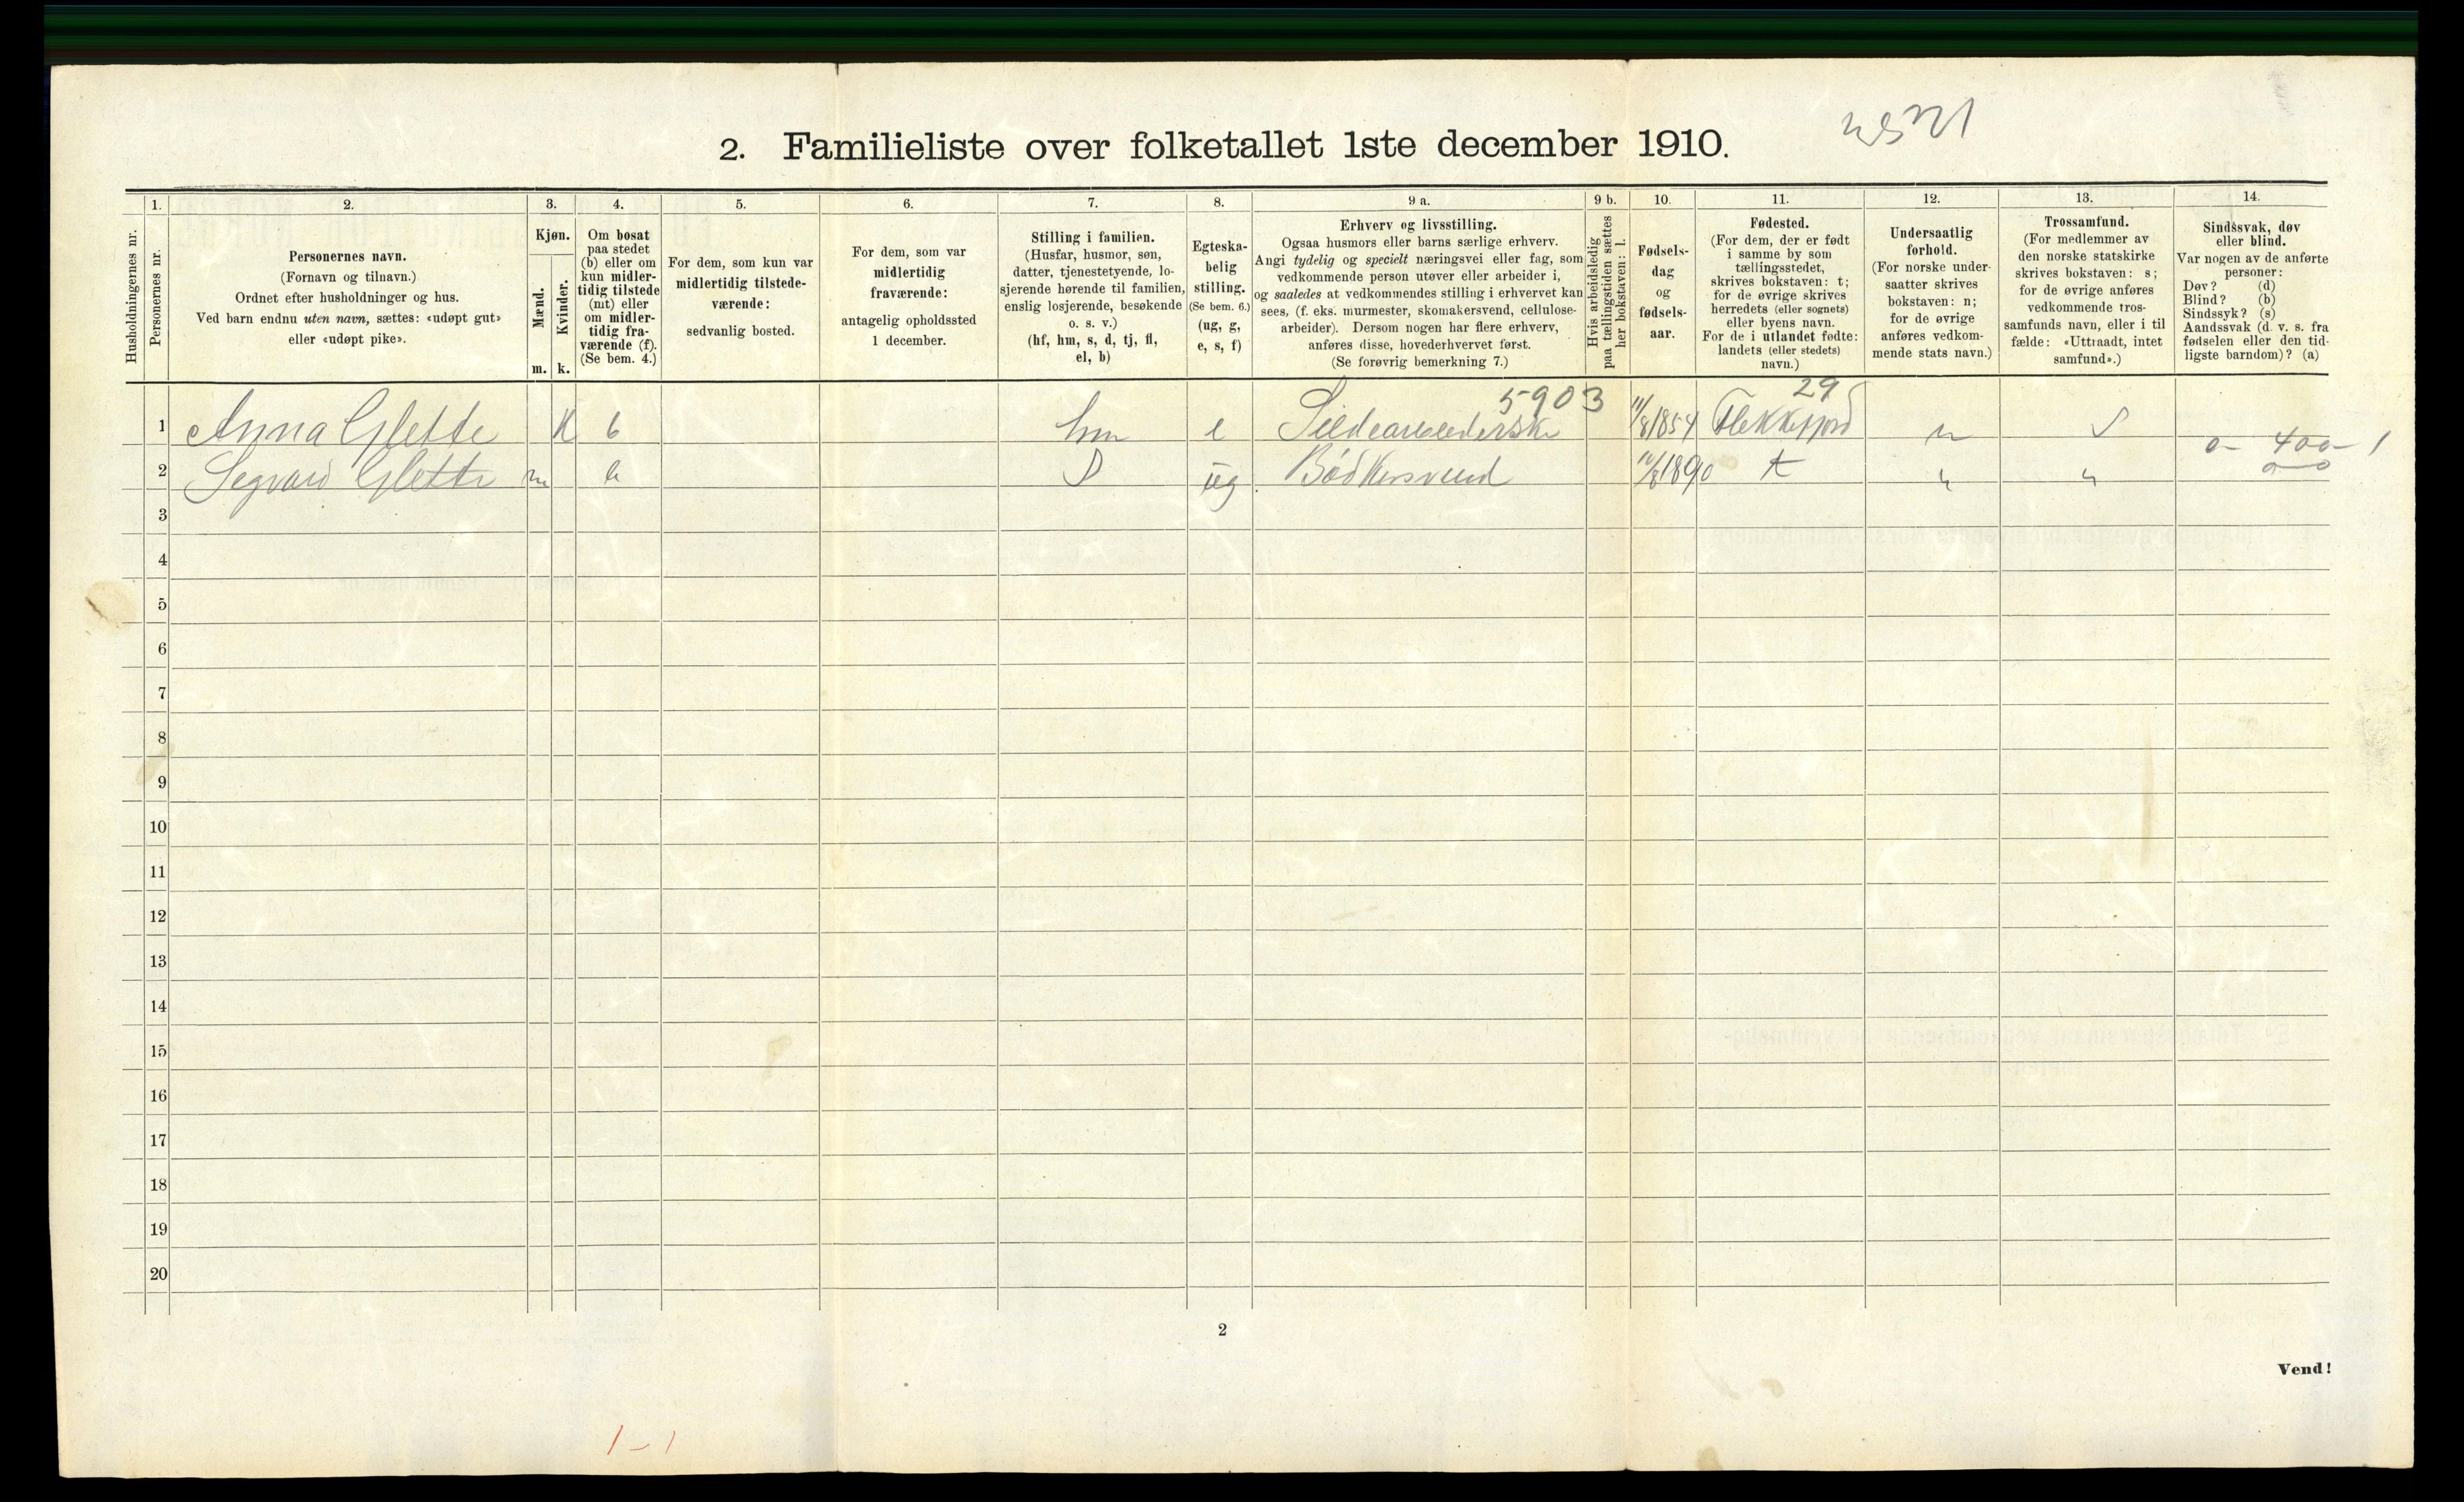 2. Familieliste over folketallet 1ste december 1910.
Husholdningernes nr.
1.
Personernes nr.
2.
Personernes navn.
(Fornavn og tilnavn.)
Ordnet efter husholdninger og hus.
Ved barn endnu uten navn, sættes: «udøpt gut»
eller «udøpt pike».
3.
Kjøn.
Mænd.
Kvinder.
m. k.
4.
Om bosat
paa stedet
(b) eller om
kun midler-
tidig tilstede
(mt) eller
om midler-
tidig fra-
værende (f).
(Se bem. 4.)
5.
For dem, som kun var
midlertidig tilstede-
værende:
sedvanlig bosted.
6.
For dem, som var
midlertidig
fraværende:
antagelig opholdssted
1 december.
7.
Stilling i familien.
(Husfar, husmor, søn,
datter, tjenestetyende, lo-
sjerende hørende til familien,
enslig losjerende, besøkende
o. s. v.)
(hf, hm, s, d, tj, fl,
el, b)
8.
Egteska-
belig
stilling.
(Se bem. 6.)
(ug, g,
e, s, f)
9 a.
Erhverv og livsstilling.
Ogsaa husmors eller barns særlige erhverv.
Angi tydelig og specielt næringsvei eller fag, som
vedkommende person utøver eller arbeider i,
og saaledes at vedkommendes stilling i erhvervet kan
sees, (f. eks. murmester, skomakersvend, cellulose-
arbeider). Dersom nogen har flere erhverv,
anføres disse, hovederhvervet først.
(Se forøvrig bemerkning 7.)
9 b.
Hvis arbeidsledig
paa tællingstiden sættes
her bokstaven: l.
10.
Fødsels-
dag
og
fødsels-
aar.
11.
Fødested.
(For dem, der er født
i samme by som
tællingsstedet,
skrives bokstaven: t;
for de øvrige skrives
herredets (eller sognets)
eller byens navn.
For de i utlandet fødte:
landets (eller stedets)
navn.)
12.
Undersaatlig
forhold.
(For norske under-
saatter skrives
bokstaven: n;
for de øvrige
anføres vedkom-
mende stats navn.)
13.
Trossamfund.
(For medlemmer av
den norske statskirke
skrives bokstaven: s;
for de øvrige anføres
vedkommende tros-
samfunds navn, eller i til
fælde: «Uttraadt, intet
samfund».)
14.
Sindssvak, døv
eller blind.
Var nogen av de anførte
personer:
Døv? (d)
Blind? (b)
Sindssyk? (s)
Aandssvak (d. v. s. fra
fødselen eller den tid-
ligste barndom)? (a)
5903 29
1 Anna Glette K b hm e 11/8 1854 Flekkefjord n s
0- 400- 1
2 Segvard Glette m b s ug Bødkersvend 1890 t
0-0
3
4
5
6
7
8
9
10
11
12
13
14
15
16
17
18
19
20
2
Vend!
1-1